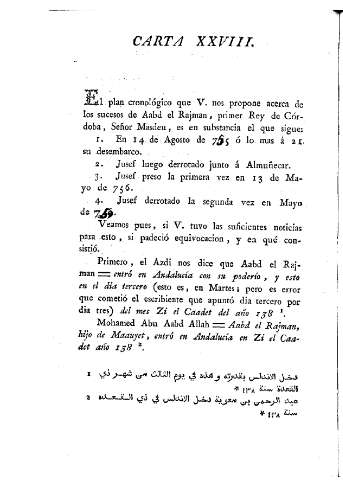 CARTA XXVIII.
El plan cronológico que V. nos propone acerca de
los sucesos de Aabd el Rajman, primer Rey de Cór-
doba, Señor Masdeu, es en substancia el que sigue:
1. En 14 de Agosto de 755 ó lo mas á 21.
su desembarco.
2. Jusef luego derrotado junto á Almuñecar.
3. Jusef preso la primera vez en 13 de Ma-
yo de 756.
4. Jusef derrotado la segunda vez en Mayo
de
Veamos pues, si V. tuvo las suficientes noticias
para esto, si padeció equivocacion, y en qué con-
sistió.
Primero, el Azdi nos dice que Aabd el Raj-
man = entró en Andalucia con su poderío, y esto
en el dia tercero (esto es, en Martes; pero es error
que cometió el escribiente que apuntó dia tercero por
dia tres) del mes Zi el Caadet del año 138 1.
Mohamed Abu Aabd Allah = Aabd el Rajman,
hijo de Maauyet, entró en Andalucía en Zi el Caa-
det año 138 2.
1 فدخل الاندلس بقدرته وهذه في يوم الثالث من شهر ذي
القعدة سنة ١٣٨ *
2 عبد الرحمن بن معوية دخل الاندلس في ذي القعده
سنة ١٣٨ *